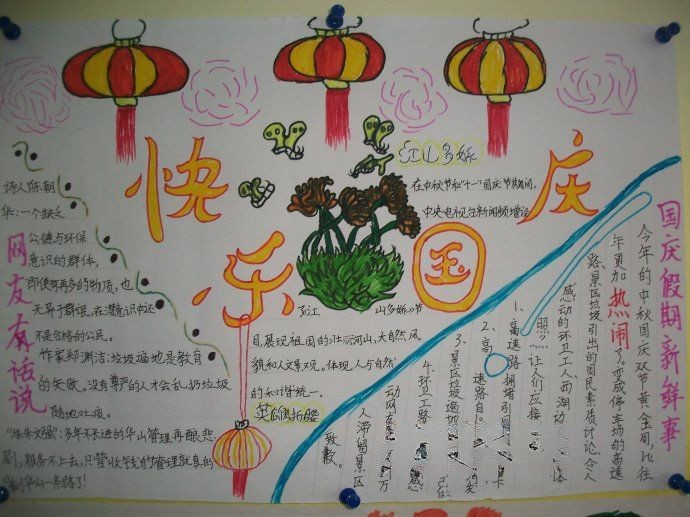 快乐国庆
江山多娇
在中秋节和“十一”国庆节期间,
中央电视台新闻频增设
了江
山多娇》节
目,展现祖国的壮丽河山,大自然风
貌和人文景观。体现人与自然
的和谐统一。
网友有话说
诗人陈朝
华:一个缺乏
公德与环保
意识的群体,
即使有再多的物质,也
无异于群氓,在潜意识也还
不是合格的公民。
作家郑渊洁:垃圾遍地是教育
的失败。没有尊严的人才会乱扔垃圾
随地吐痰。
多年不长进的华山管理再酿悲
剧,服务不上去,只管收钱的管理就真的
国庆假期新鲜事
今年的中秋国庆双节黄金周,比往
年更加热闹了。变成停车场的高速
路,景区垃圾引出的国民素质讨论,令人
感动的环卫工人西湖边
照
让人们应接
1、高速路拥堵引
2、高速路自
3、景区垃圾遍
4、环卫工
动网
人滞留景区
致歉。